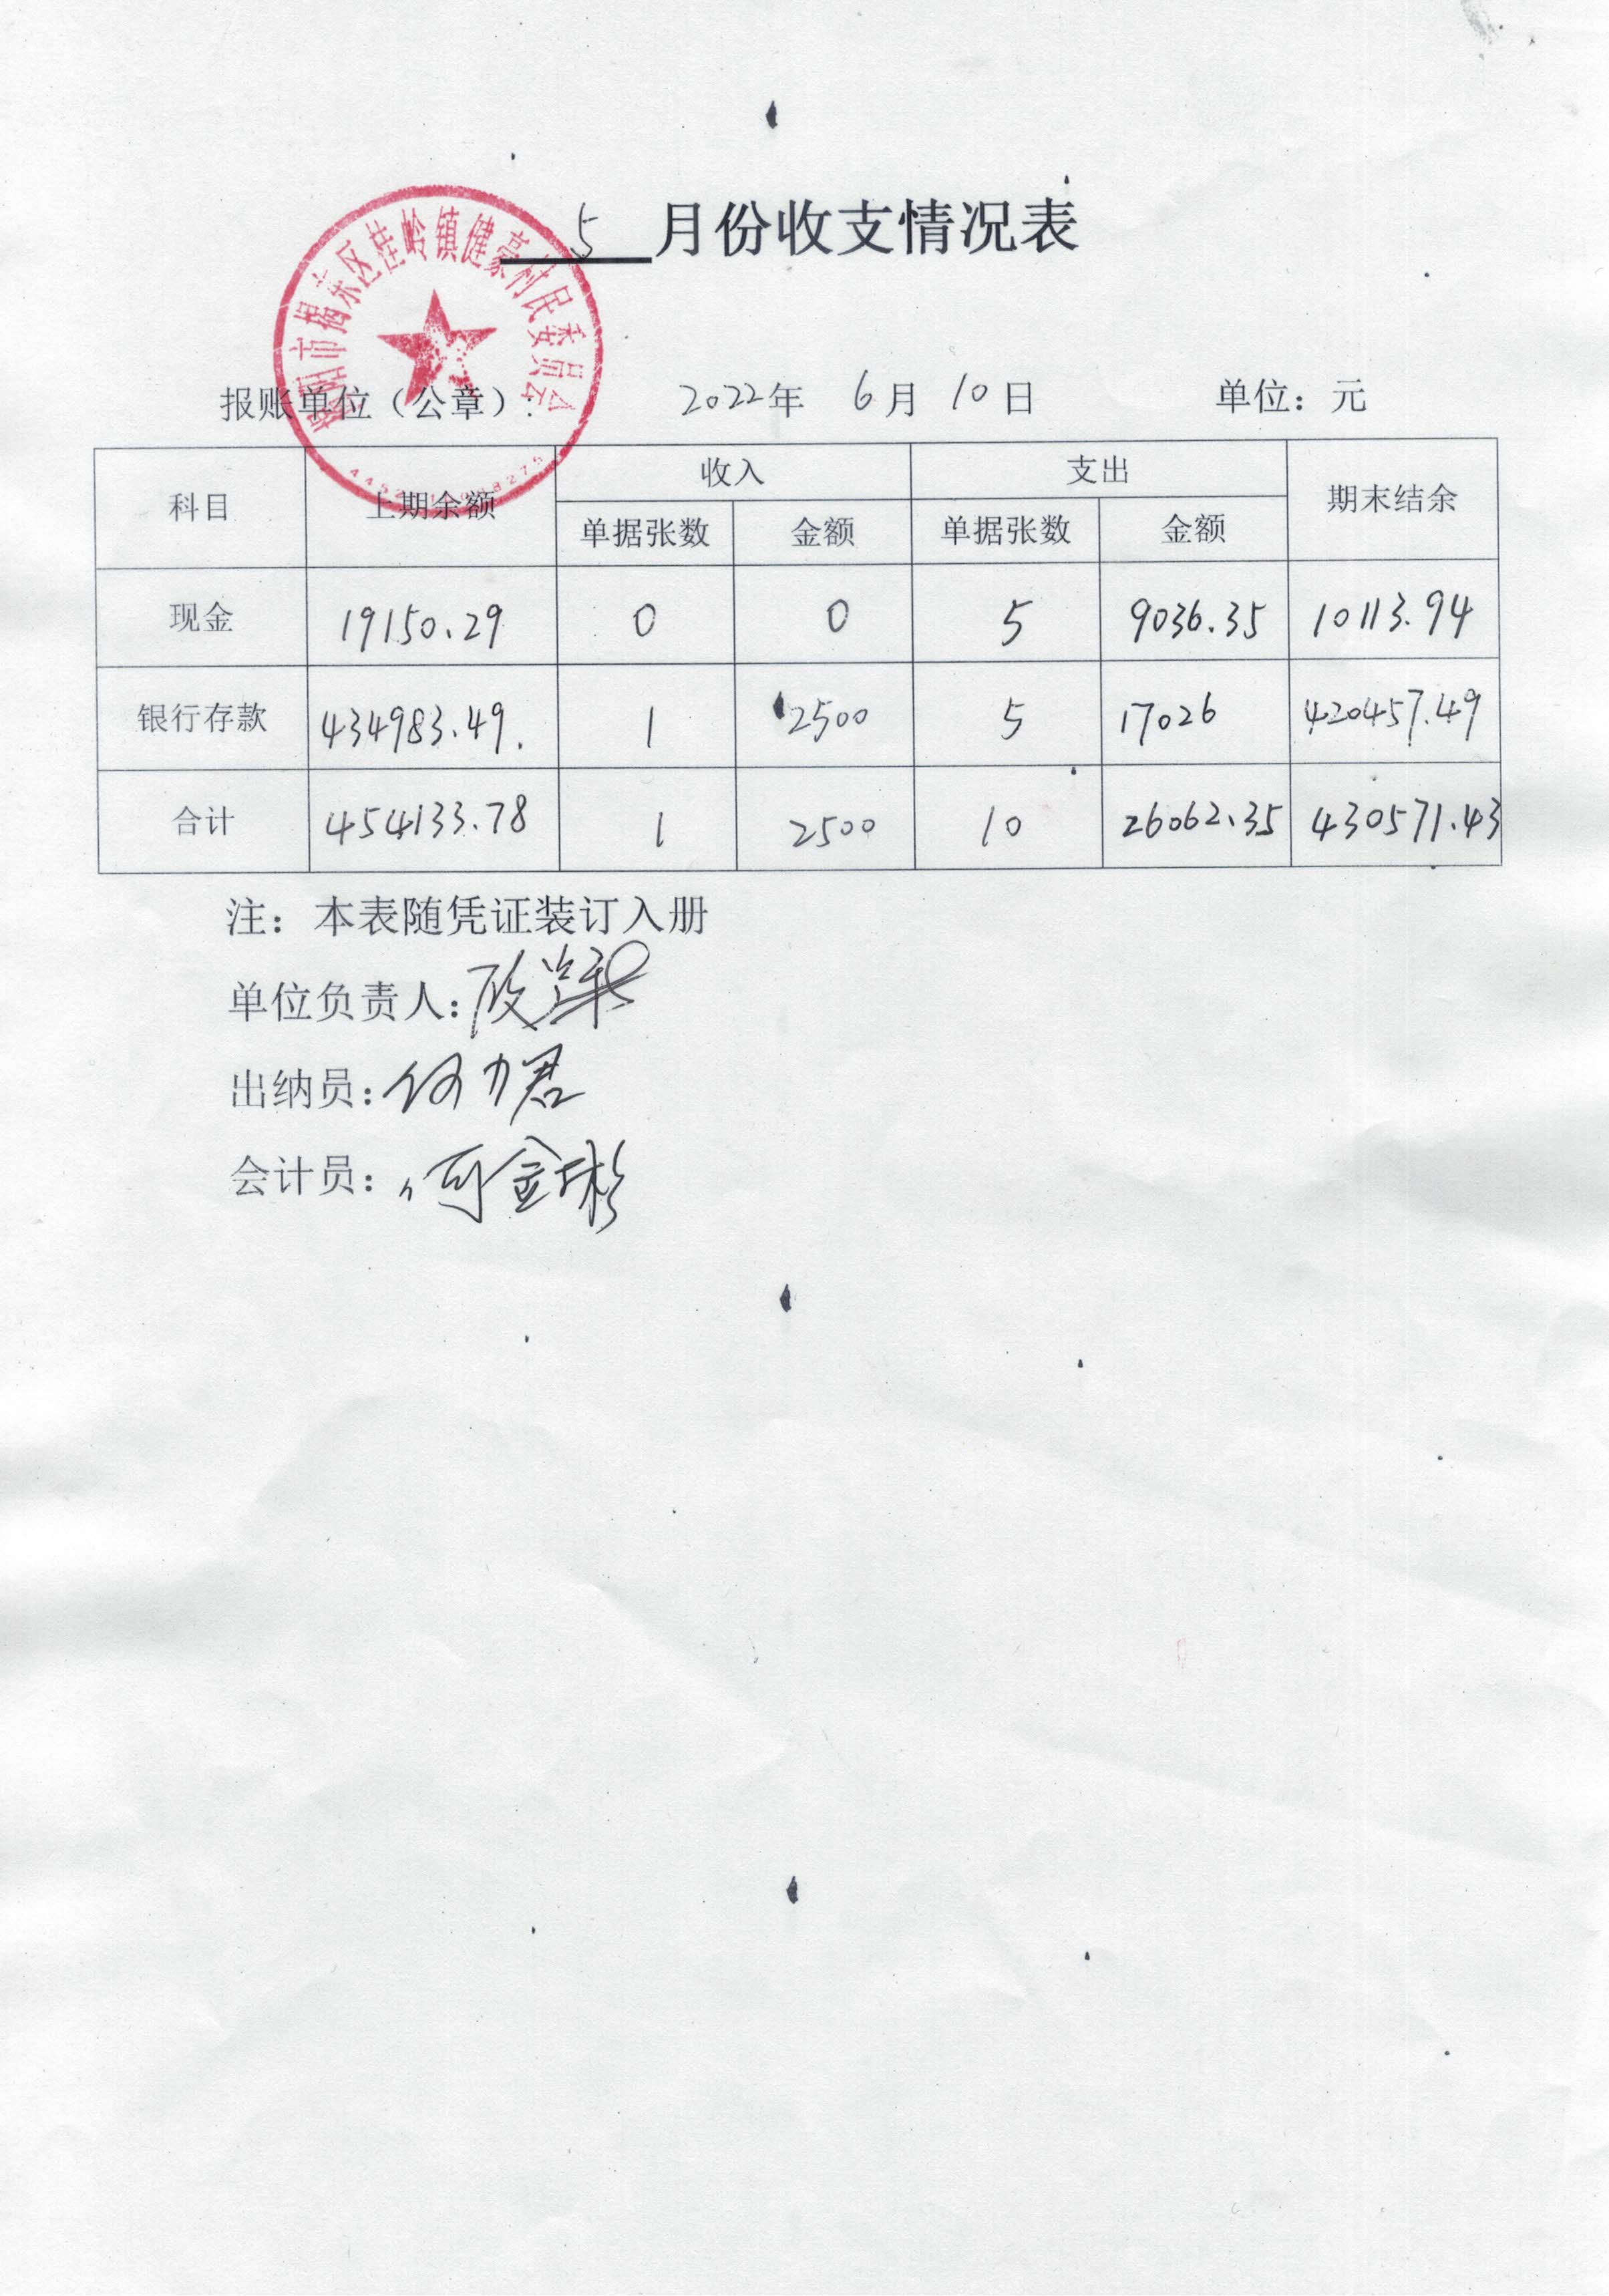 5 月份收支情况表
揭阳市揭东区桂岭镇健豪村民委员会
报账单位（公章）： 2022年 6月 10日 单位：元
科目 上期余额 收入 支出 期末结余
单据张数 金额 单据张数 金额
现金 19150.29 0 0 5 9036.35 10113.94
银行存款 434983.49. 1 2500 5 17026 420457.49
合计 454133.78 1 2500 10 26062.35 430571.43
注：本表随凭证装订入册
单位负责人：
出纳员：何力君
会计员：何金彬